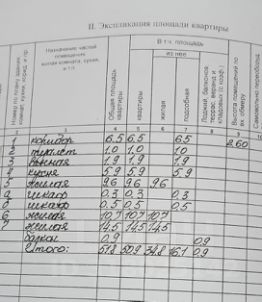 II. Экспликация площади квартиры
Назначение частей помещения: жилая комната, кухня, и т.п.
Общая площадь квартиры
В т.ч. площадь
из нее
квартиры
жилая
подсобная
Высота помещений по внутр. обмеру
Самовольно переоборуд.
4 5 6 7 8 9 10
1 коридор 6.5 6.5 6.5 2.60
2 туалет 1.0 1.0 1.0
3 ванная 1.9 1.9 1.9
4 кухня 5.9 5.9 5.9
5 жилая 9.6 9.6 9.6
а шкаф 0.3 0.3 0.3
шкаф 0.5 0.5 0.5
6 жилая 10.7 10.7 10.7
7 жилая 14.5 14.5 14.5
балкон 0.9 0.9
Итого: 51.8 50.9 34.8 16.1 0.9